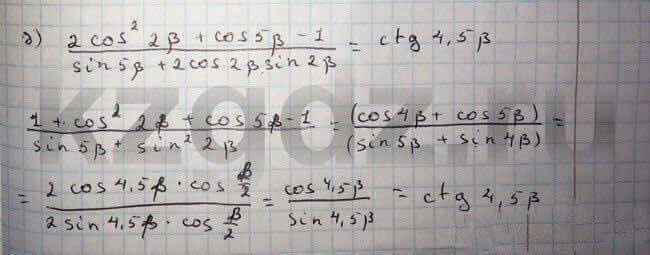 д) (2 cos² 2β + cos 5β − 1)/(sin 5β + 2 cos 2β · sin 2β) = ctg 4,5β
(1 + cos² 2β + cos 5β − 1)/(sin 5β + sin² 2β) = (cos 4β + cos 5β)/(sin 5β + sin 4β) =
= (2 cos 4,5β · cos β/2)/(2 sin 4,5β · cos β/2) = cos 4,5β/sin 4,5β = ctg 4,5β
kzgdz.ru